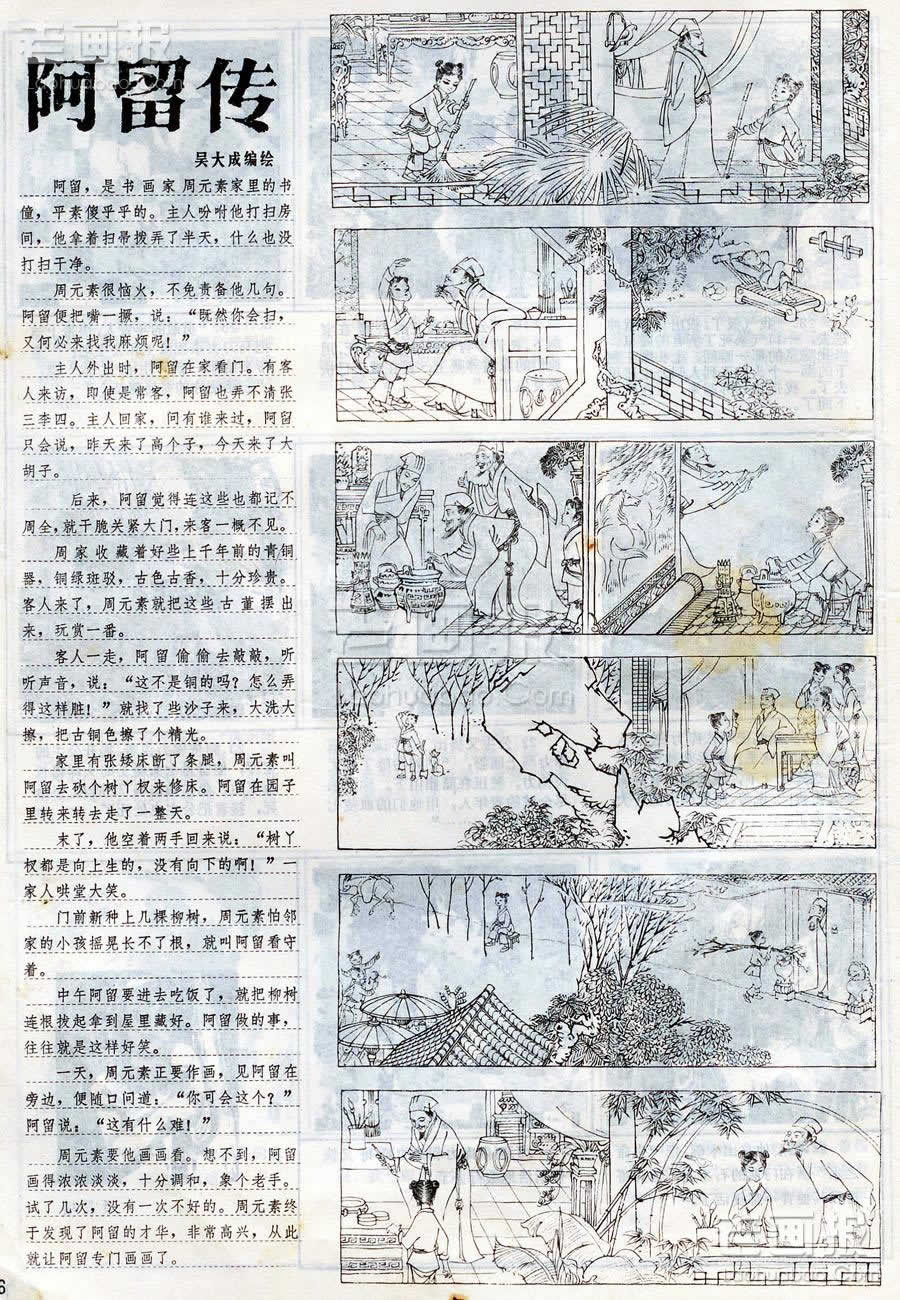 阿留传
吴大成编绘
阿留，是书画家周元素家里的书
僮，平素傻乎乎的。主人吩咐他打扫房
间，他拿着扫帚拨弄了半天，什么也没
打扫干净。
周元素很恼火，不免责备他几句。
阿留便把嘴一撅，说：“既然你会扫，
又何必来找我麻烦呢！”
主人外出时，阿留在家看门。有客
人来访，即使是常客，阿留也弄不清张
三李四。主人回家，问有谁来过，阿留
只会说，昨天来了高个子，今天来了大
胡子。
后来，阿留觉得连这些也都记不
周全，就干脆关紧大门，来客一概不见。
周家收藏着好些上千年前的青铜
器，铜绿斑驳，古色古香，十分珍贵。
客人来了，周元素就把这些古董摆出
来，玩赏一番。
客人一走，阿留偷偷去敲敲，听
听声音，说：“这不是铜的吗？怎么弄
得这样脏！”就找了些沙子来，大洗大
擦，把古铜色擦了个精光。
家里有张矮床断了条腿，周元素叫
阿留去砍个树丫杈来修床。阿留在园子
里转来转去走了一整天。
末了，他空着两手回来说：“树丫
杈都是向上生的，没有向下的啊！”一
家人哄堂大笑。
门前新种上几棵柳树，周元素怕邻
家的小孩摇晃长不了根，就叫阿留看守
着。
中午阿留要进去吃饭了，就把柳树
连根拔起拿到屋里藏好。阿留做的事，
往往就是这样好笑。
一天，周元素正要作画，见阿留在
旁边，便随口问道：“你可会这个？”
阿留说：“这有什么难！”
周元素要他画画看。想不到，阿留
画得浓浓淡淡，十分调和，象个老手。
试了几次，没有一次不好的。周元素终
于发现了阿留的才华，非常高兴，从此
就让阿留专门画画了。
6